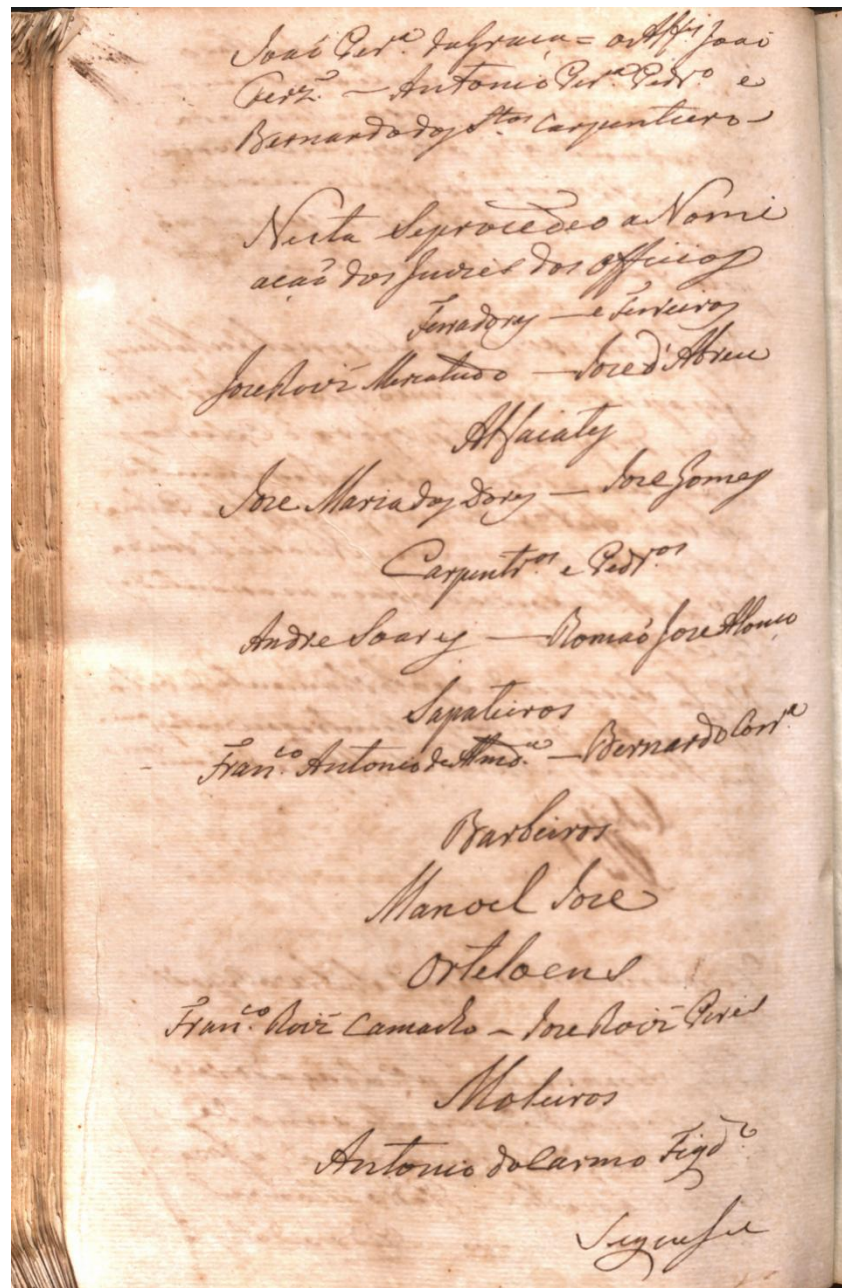 João Per.ª da Graça = o Alf.s João
Perz.º — Antonio Per.ª Pedr.º e
Bernardo dos S.tos Carpentiero
Nesta Seprocedeo a Nomi
ação dos Juizes dos officios
Ferradores — e Ferreiros
Jose Roiz — Jose d'Abreu
Alfaiates
Jose Maria das Dores — Jose Gomes
Carpentr.os e Pedr.os
Andre Soares — Romaõ Jose Afonço
Sapateiros
Fran.co Antonio de Almd.a — Bernardo Corr.a
Barbeiros
Manoel Jose
Orteloens
Fran.co Roiz Camacho — Jose Roiz Peres
Moleiros
Antonio do Carmo Figd.o
Seguese